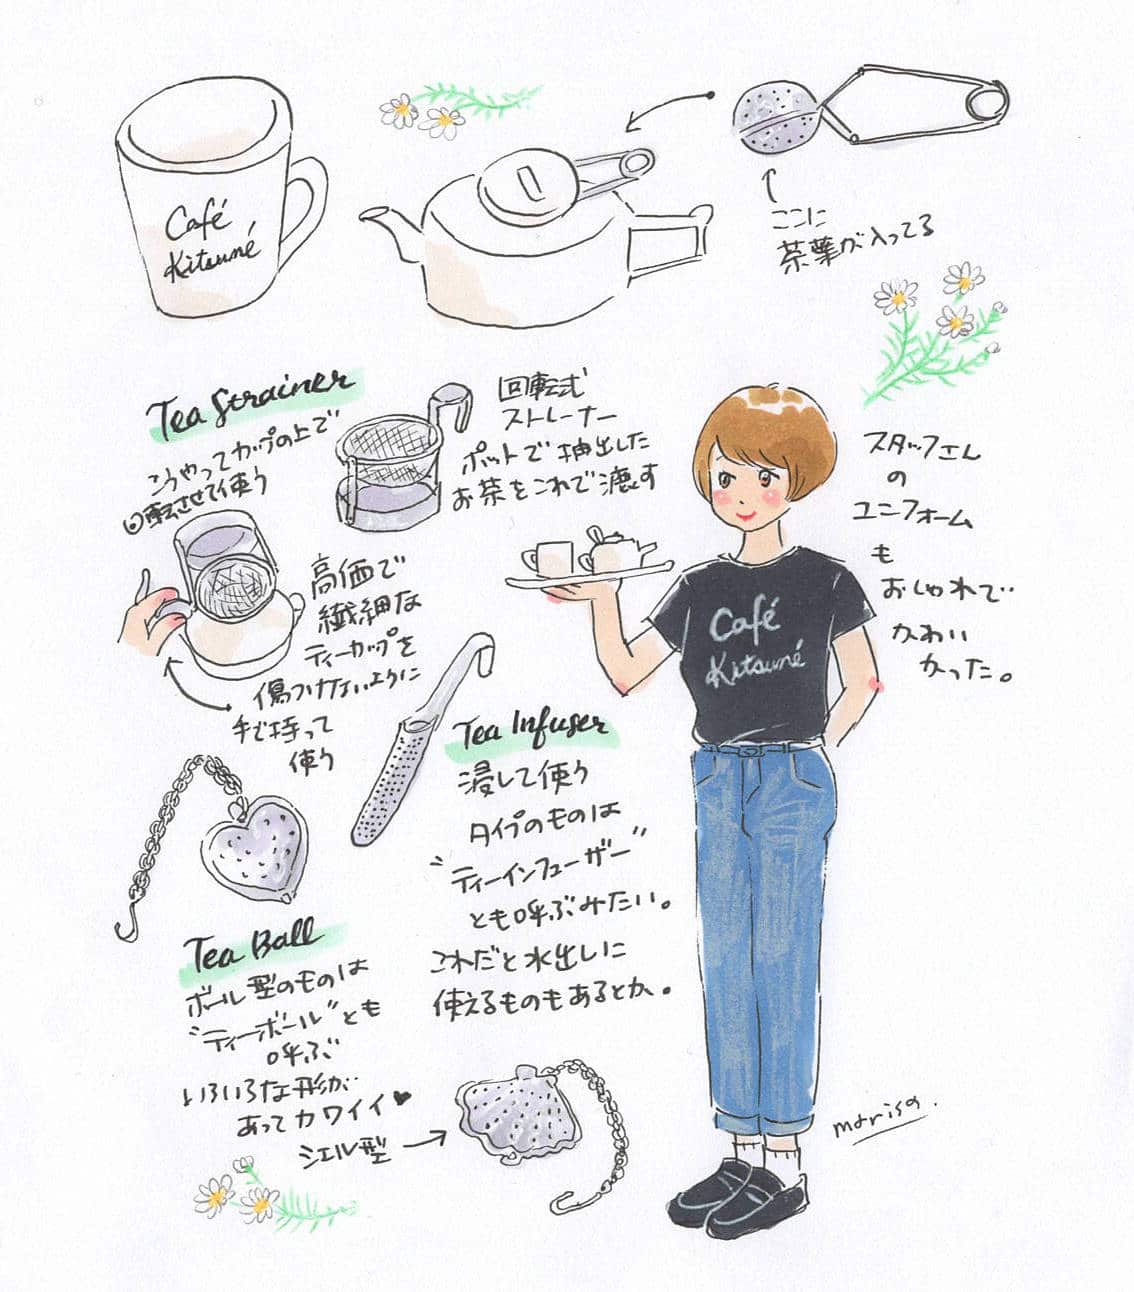 Café
Kitsuné
ここに
茶葉が入ってる
Tea Strainer
こうやってカップの上で
回転させて使う
回転式
ストレーナー
ポットで抽出した
お茶をこれで漉す
高価で
繊細な
ティーカップを
傷つけないように
手で持って
使う
スタッフさん
の
ユニフォーム
も
おしゃれで
かわい
かった。
Café
Kitsuné
Tea Infuser
浸して使う
タイプのものは
"ティーインフューザー"
とも呼ぶみたい。
これだと水出しに
使えるものもあるとか。
Tea Ball
ボール型のものは
"ティーボール"とも
呼ぶ
いろいろな形が
あってカワイイ♥
シェル型 →
marisa.